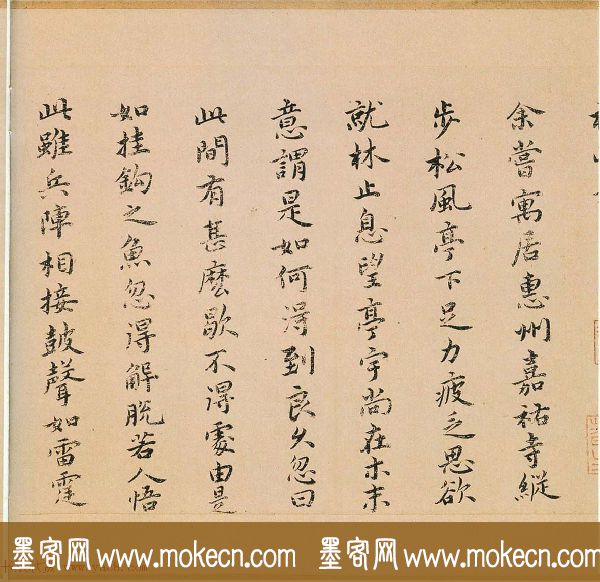 余嘗寓居惠州嘉祐寺縱
步松風亭下足力疲乏思欲
就林止息望亭宇尚在木末
意謂是如何得到良久忽曰
此間有甚麼歇不得處由是
如挂鈎之魚忽得解脫若人悟
此雖兵陣相接鼓聲如雷霆
墨客网 www.mokecn.com 墨客网 www.mokecn.com